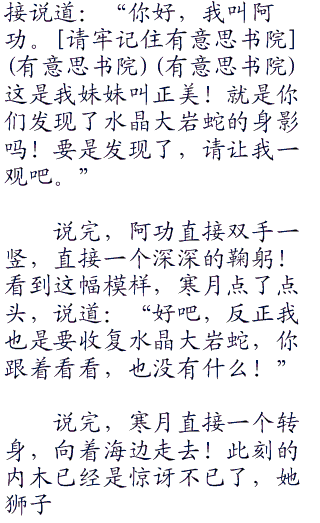 接说道：“你好，我叫阿
功。[请牢记住有意思书院]
(有意思书院)(有意思书院)
这是我妹妹叫正美！就是你
们发现了水晶大岩蛇的身影
吗！要是发现了，请让我一
观吧。”
说完，阿功直接双手一
竖，直接一个深深的鞠躬！
看到这幅模样，寒月点了点
头，说道：“好吧，反正我
也是要收复水晶大岩蛇，你
跟着看看，也没有什么！”
说完，寒月直接一个转
身，向着海边走去！此刻的
内木已经是惊讶不已了，她
狮子